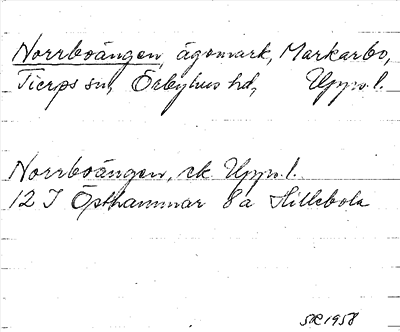 Norrboängen, ägomark, Markarbo,
Tierps sn, Örbyhus hd, Upps. l.
Norrboängen, ek Upps. l.
12 I Östhammar 8 a Hillebola
SR 1958